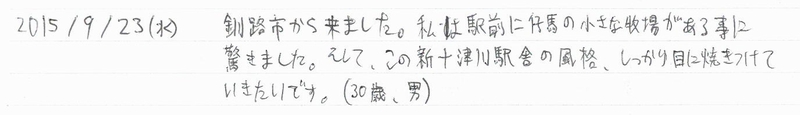 2015/9/23(水) 釧路市から来ました。私は駅前に仔馬の小さな牧場がある事に
驚きました。そして、この新十津川駅舎の風格、しっかり目に焼きつけて
いきたいです。(30歳、男)